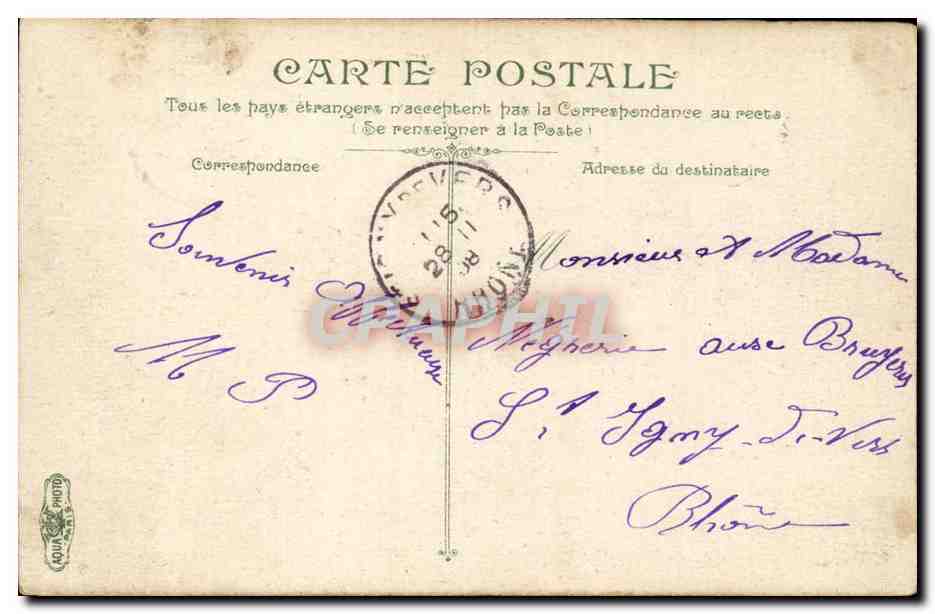 CARTE POSTALE
Tous les pays étrangers n'acceptent pas la Correspondance au recto.
(Se renseigner à la Poste)
Correspondance
Adresse du destinataire
Souvenir
M P
Monsieur et Madame
aux Bruyers
St Igny-de-Vers
Rhône
28 - 11
08
RHONE
CPAPHIL
AQUA PHOTO
PARIS